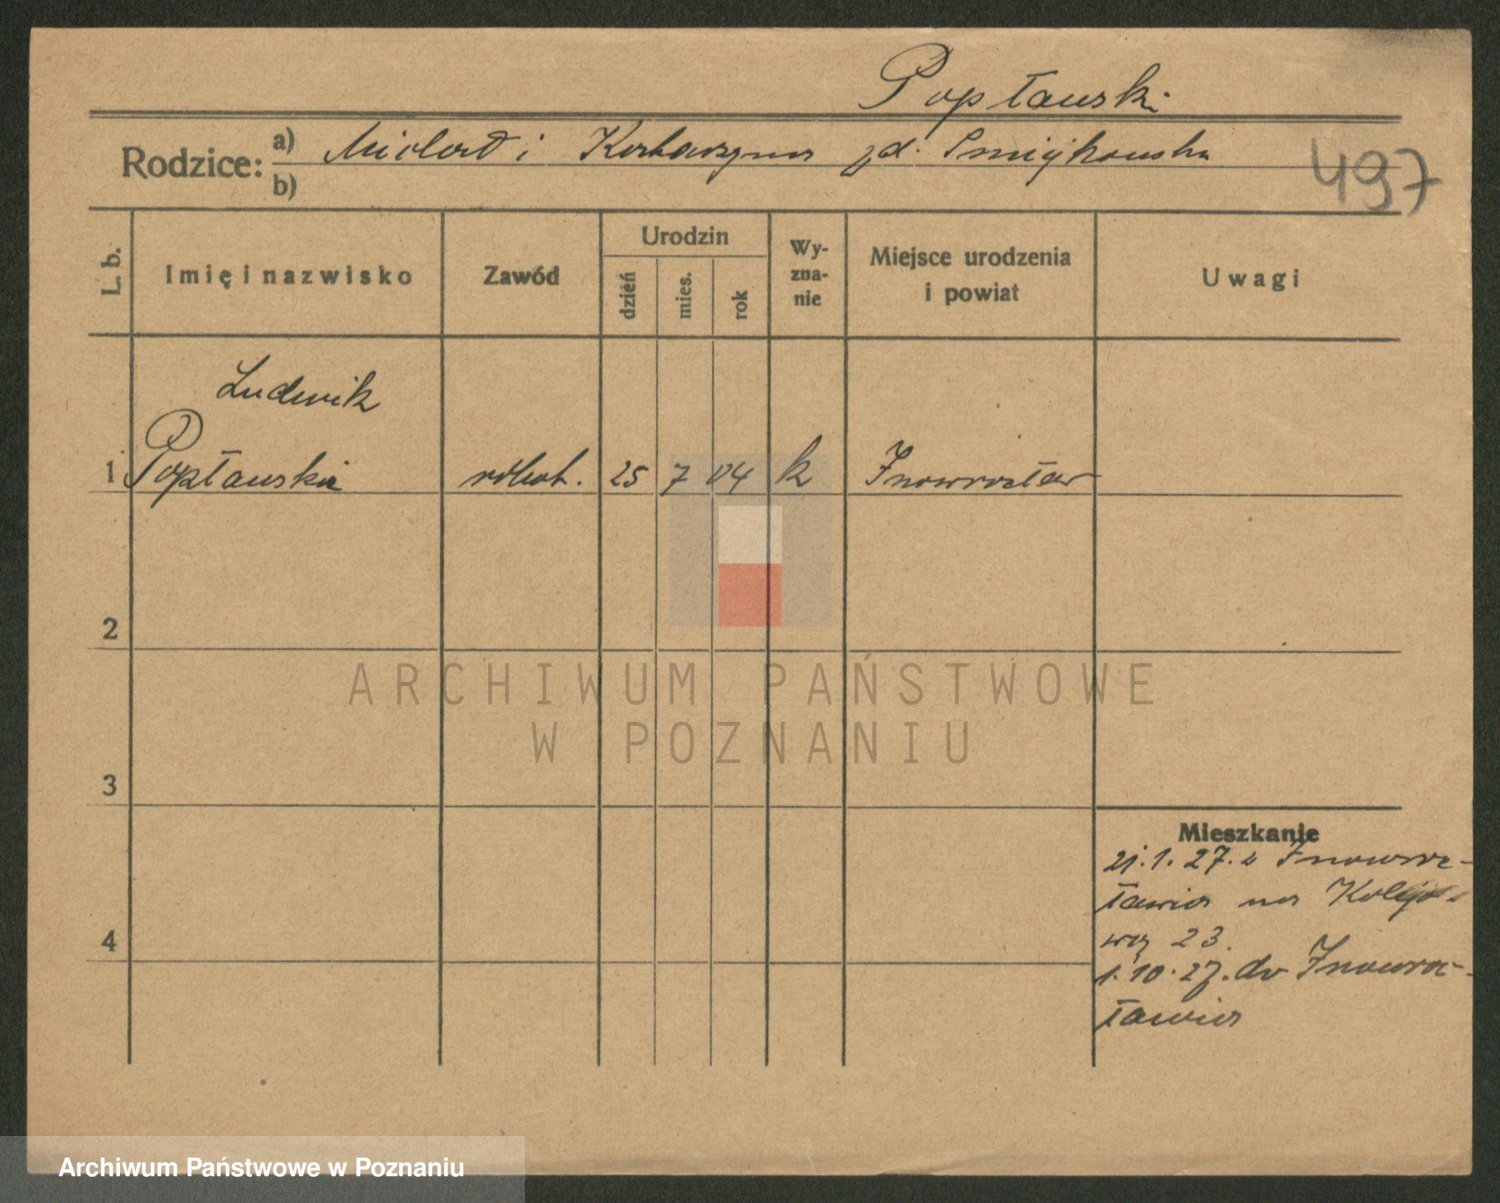 Popławski
Rodzice: a) Michał i Katarzyna zd.
b)
497
L. b.
Imię i nazwisko
Zawód
Urodzin
dzień
mies.
rok
Wy-
zna-
nie
Miejsce urodzenia
i powiat
Uwagi
Ludwik
1 Popławski robot. 25 7 04 k Inowrocław
2
ARCHIWUM PAŃSTWOWE
W POZNANIU
3
Mieszkanie
21.1.27. z Inowroc-
ławia na Kolejo-
wą 23.
4
1.10.27. do Inowroc-
ławia
Archiwum Państwowe w Poznaniu